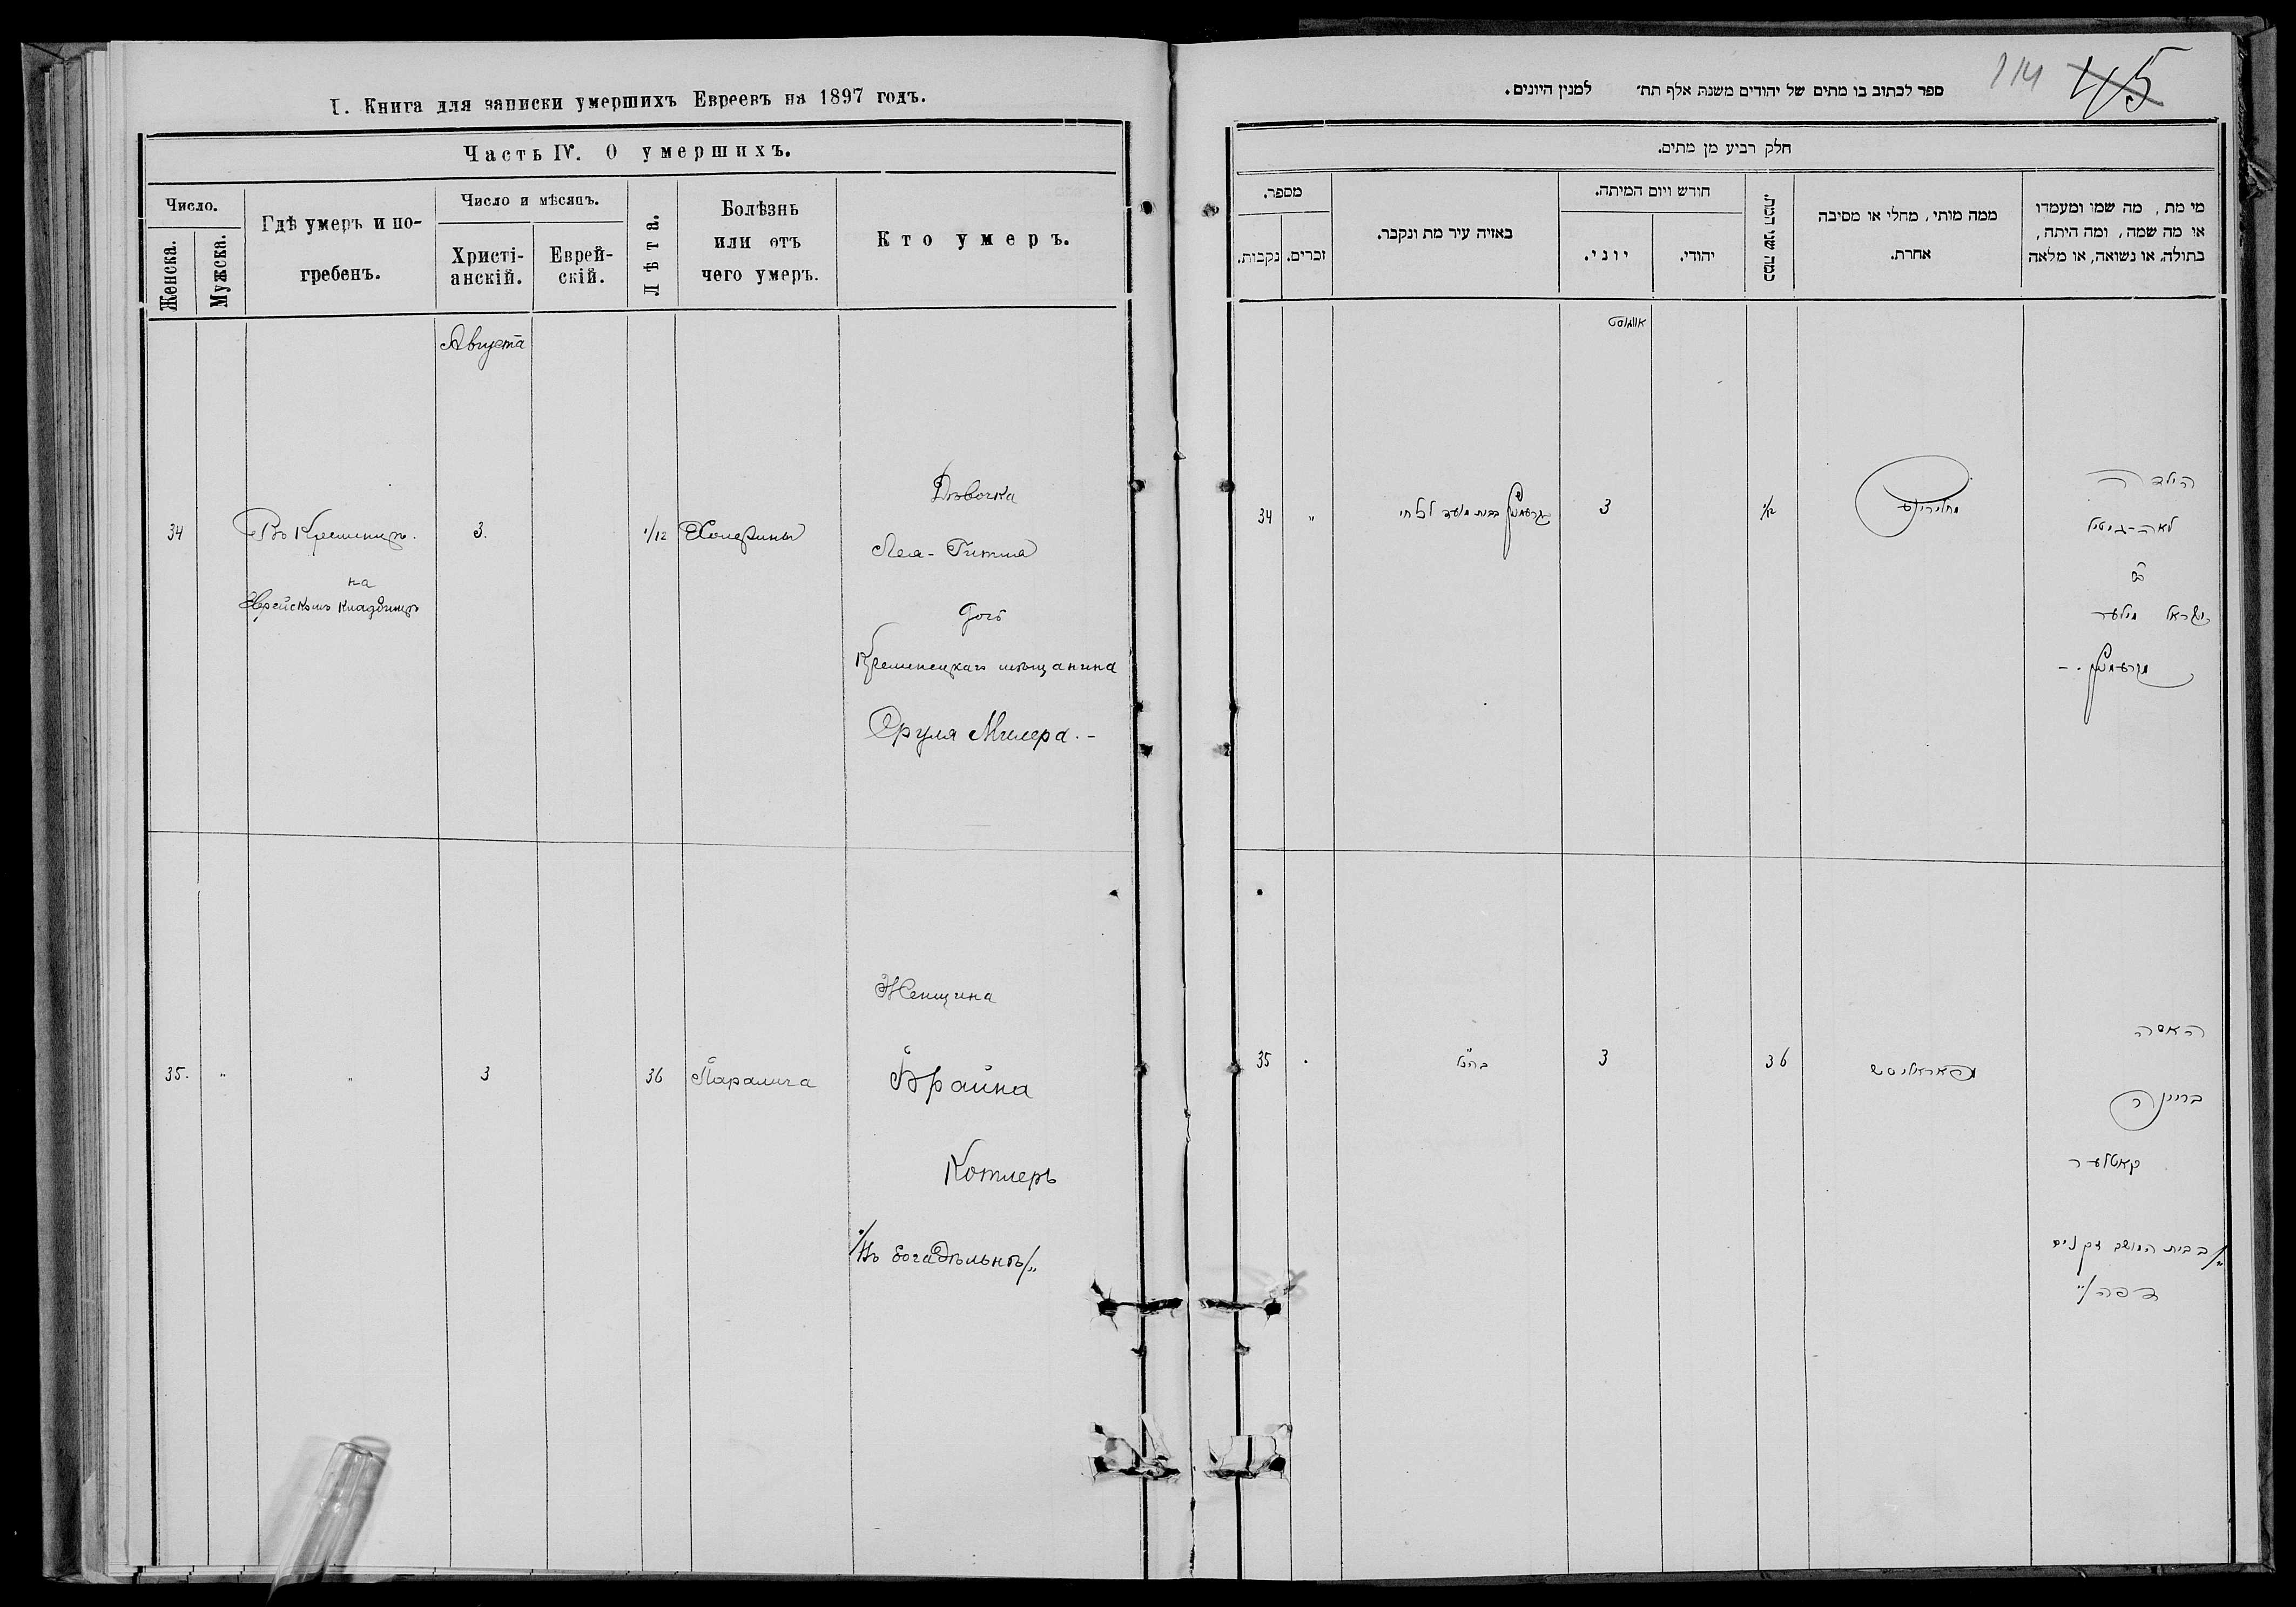 I. Книга для записки умершихъ Евреевъ на 1897 годъ.
Часть IV. О умершихъ.
Число.
Женска.
Мужска.
Гдѣ умеръ и по-
гребенъ.
Число и мѣсяцъ.
Христі-
анскій.
Еврей-
скій.
Лѣта.
Болѣзнь
или отъ
чего умеръ.
Кто умеръ.
Августа
34
Въ Кременцѣ.
на
Еврейскомъ кладбищѣ
3.
1/12
Холерины
Дѣвочка
Лея-Гитля
дочь
Кременецкаго мѣщанина
Сруля Милера.-
35.
"
"
3
36
Паралича
Женщина
Брайна
Котлеръ
/Въ богадѣльнѣ/"
114
45
ספר לכתוב בו מתים של יהודים משנת אלף תת׳ למנין היונים.
חלק רביע מן מתים.
מספר.
נקבות.
זכרים.
באזיה עיר מת ונקבר.
חודש ויום המיתה.
יוני.
יהודי.
כמה שני המת.
ממה מותי, מחלי או מסיבה
אחרת.
מי מת, מה שמו ומעמדו
או מה שמה, ומה היתה,
בתולה, או נשואה, או מלאה
אווגוסט
34
"
3
1/12
הילדה
לאה-גיטיל
בת
ישראל מילער
35
בהנ"ל
3
36
האשה
בריינה
קאטלער
/בבית המושב זקנים
דפה/"